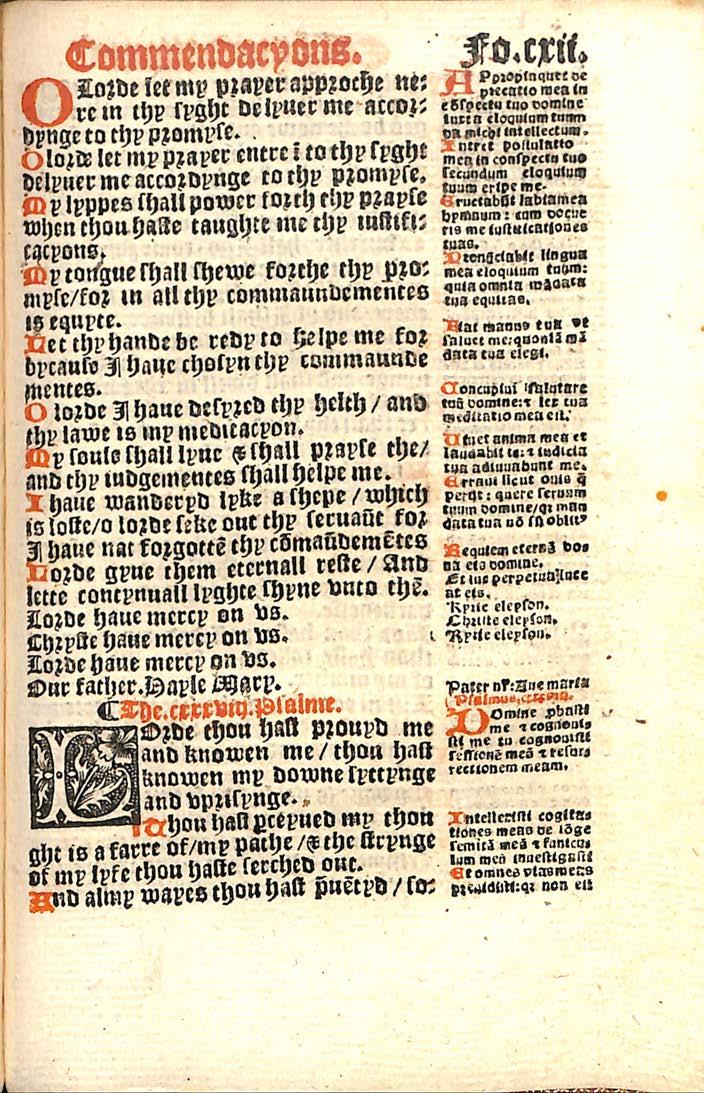 Commendacyons.
Fo.cxii.
O Lorde let my prayer approche ne:
re in thy syght delyuer me accor:
dynge to thy promyse.
O lorde let my prayer entre ī to thy syght
delyuer me accordynge to thy promyse.
My lyppes shall power forth thy prayse
when thou haste taughte me thy iustifi:
cacyons.
My tongue shall shewe forthe thy pro:
myse/for in all thy commaundementes
is equyte.
Let thy hande be redy to helpe me for
bycause I haue chosyn thy commaunde
mentes.
O lorde I haue desyred thy helth / and
thy lawe is my meditacyon.
My soule shall lyue & shall prayse the/
and thy iudgementes shall helpe me.
I haue wanderyd lyke a shepe / which
is loste/o lorde seke out thy seruaūt for
I haue nat forgottē thy cōmaūdemētes
Lorde gyue them eternall reste / And
lette contynuall lyghte shyne vnto thē.
Lorde haue mercy on vs.
Chryste haue mercy on vs.
Lorde haue mercy on vs.
Our father. Hayle Mary.
¶ The.cxxxviij.Psalme.
LOrde thou hast prouyd me
and knowen me / thou hast
knowen my downe syttynge
and vprisynge.
Thou hast ꝑceyued my thou
ght is a farre of/my pathe /& the strynge
of my lyfe thou haste serched out.
And almy wayes thou hast p̄uētyd / so:
APpropinquet de
precatio mea in
cōspectu tuo domine
iuxta eloquium tuum
da michi intellectum.
Intret postulatio
mea in conspectu tuo
secundum eloquium
tuum eripe me.
Eructabūt labia mea
hymnum: cum docue
ris me iustificationes
tuas.
Pronūciabit lingua
mea eloquium tuum:
quia omnia mādata
tua equitas.
Fiat manus tua vt
saluet me:quoniā mā
data tua elegi.
Concupiui salutare
tuū domine:⁊ lex tua
meditatio mea est.
Uiuet anima mea et
laudabit te:⁊ iudicia
tua adiuuabunt me.
Erraui sicut ouis q̄
periit: quere seruum
tuum domine/qr man
data tua nō sū oblit⁹
Requiem eternā do
na eis domine.
Et lux perpetua luce
at eis.
Kyrie eleyson.
Christe eleyson.
Kyrie eleyson.
Pater nr̄:Aue maria
DOmine ꝓbasti
me ⁊ cognouis
ti me tu cognouisti
sessionē meā ⁊ resur
rectionem meam.
Intellexisti cogita
tiones meas de lōge
semitā meā ⁊ funicu
lum meū inuestigasti
Et omnes vias meas
preuidisti:qr non est